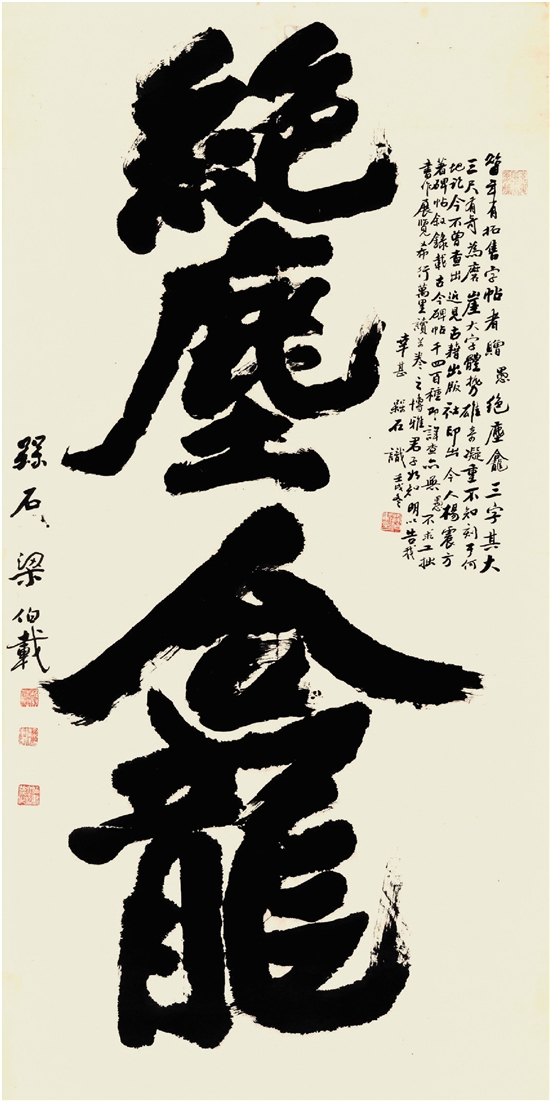 絶塵龕
昔年有拓售字帖者贈愚絶塵龕三字其大
三尺有奇為磨崖大字體勢雄奇凝重不知刻于何
地訖今不曾查出近見古籍出版社印出今人楊震方
著碑帖叙錄載古今碑帖千四百種即詳查亦無愚不求工拙
書作展覽希行萬里讀萬卷之博雅君子如知明以告我
幸甚 石識壬戌冬
石 梁伯載